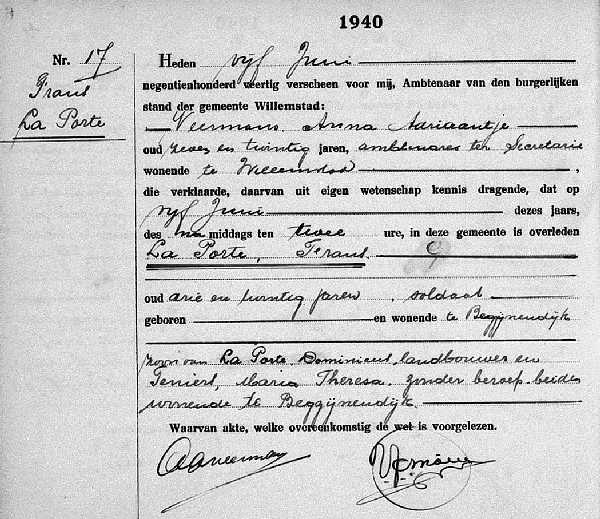 1940
Nr. 17
Frans
La Porte
Heden vijf Juni
negentienhonderd veertig verscheen voor mij, Ambtenaar van den burgerlijken
stand der gemeente Willemstad:
Veermans, Anna Adriaantje
oud zeven en twintig jaren, ambtenares ter Secretarie
wonende te Willemstad
die verklaarde, daarvan uit eigen wetenschap kennis dragende, dat op
vijf Juni dezes jaars,
des na middags ten twee ure, in deze gemeente is overleden
La Porte, Frans.
oud drie en twintig jaren, soldaat
geboren en wonende te Begijnendijk
zoon van La Porte, Dominicus, landbouwer en
Teniers, Maria Theresa, zonder beroep, beiden
wonende te Beggijnendijk.
Waarvan akte, welke overeenkomstig de wet is voorgelezen.